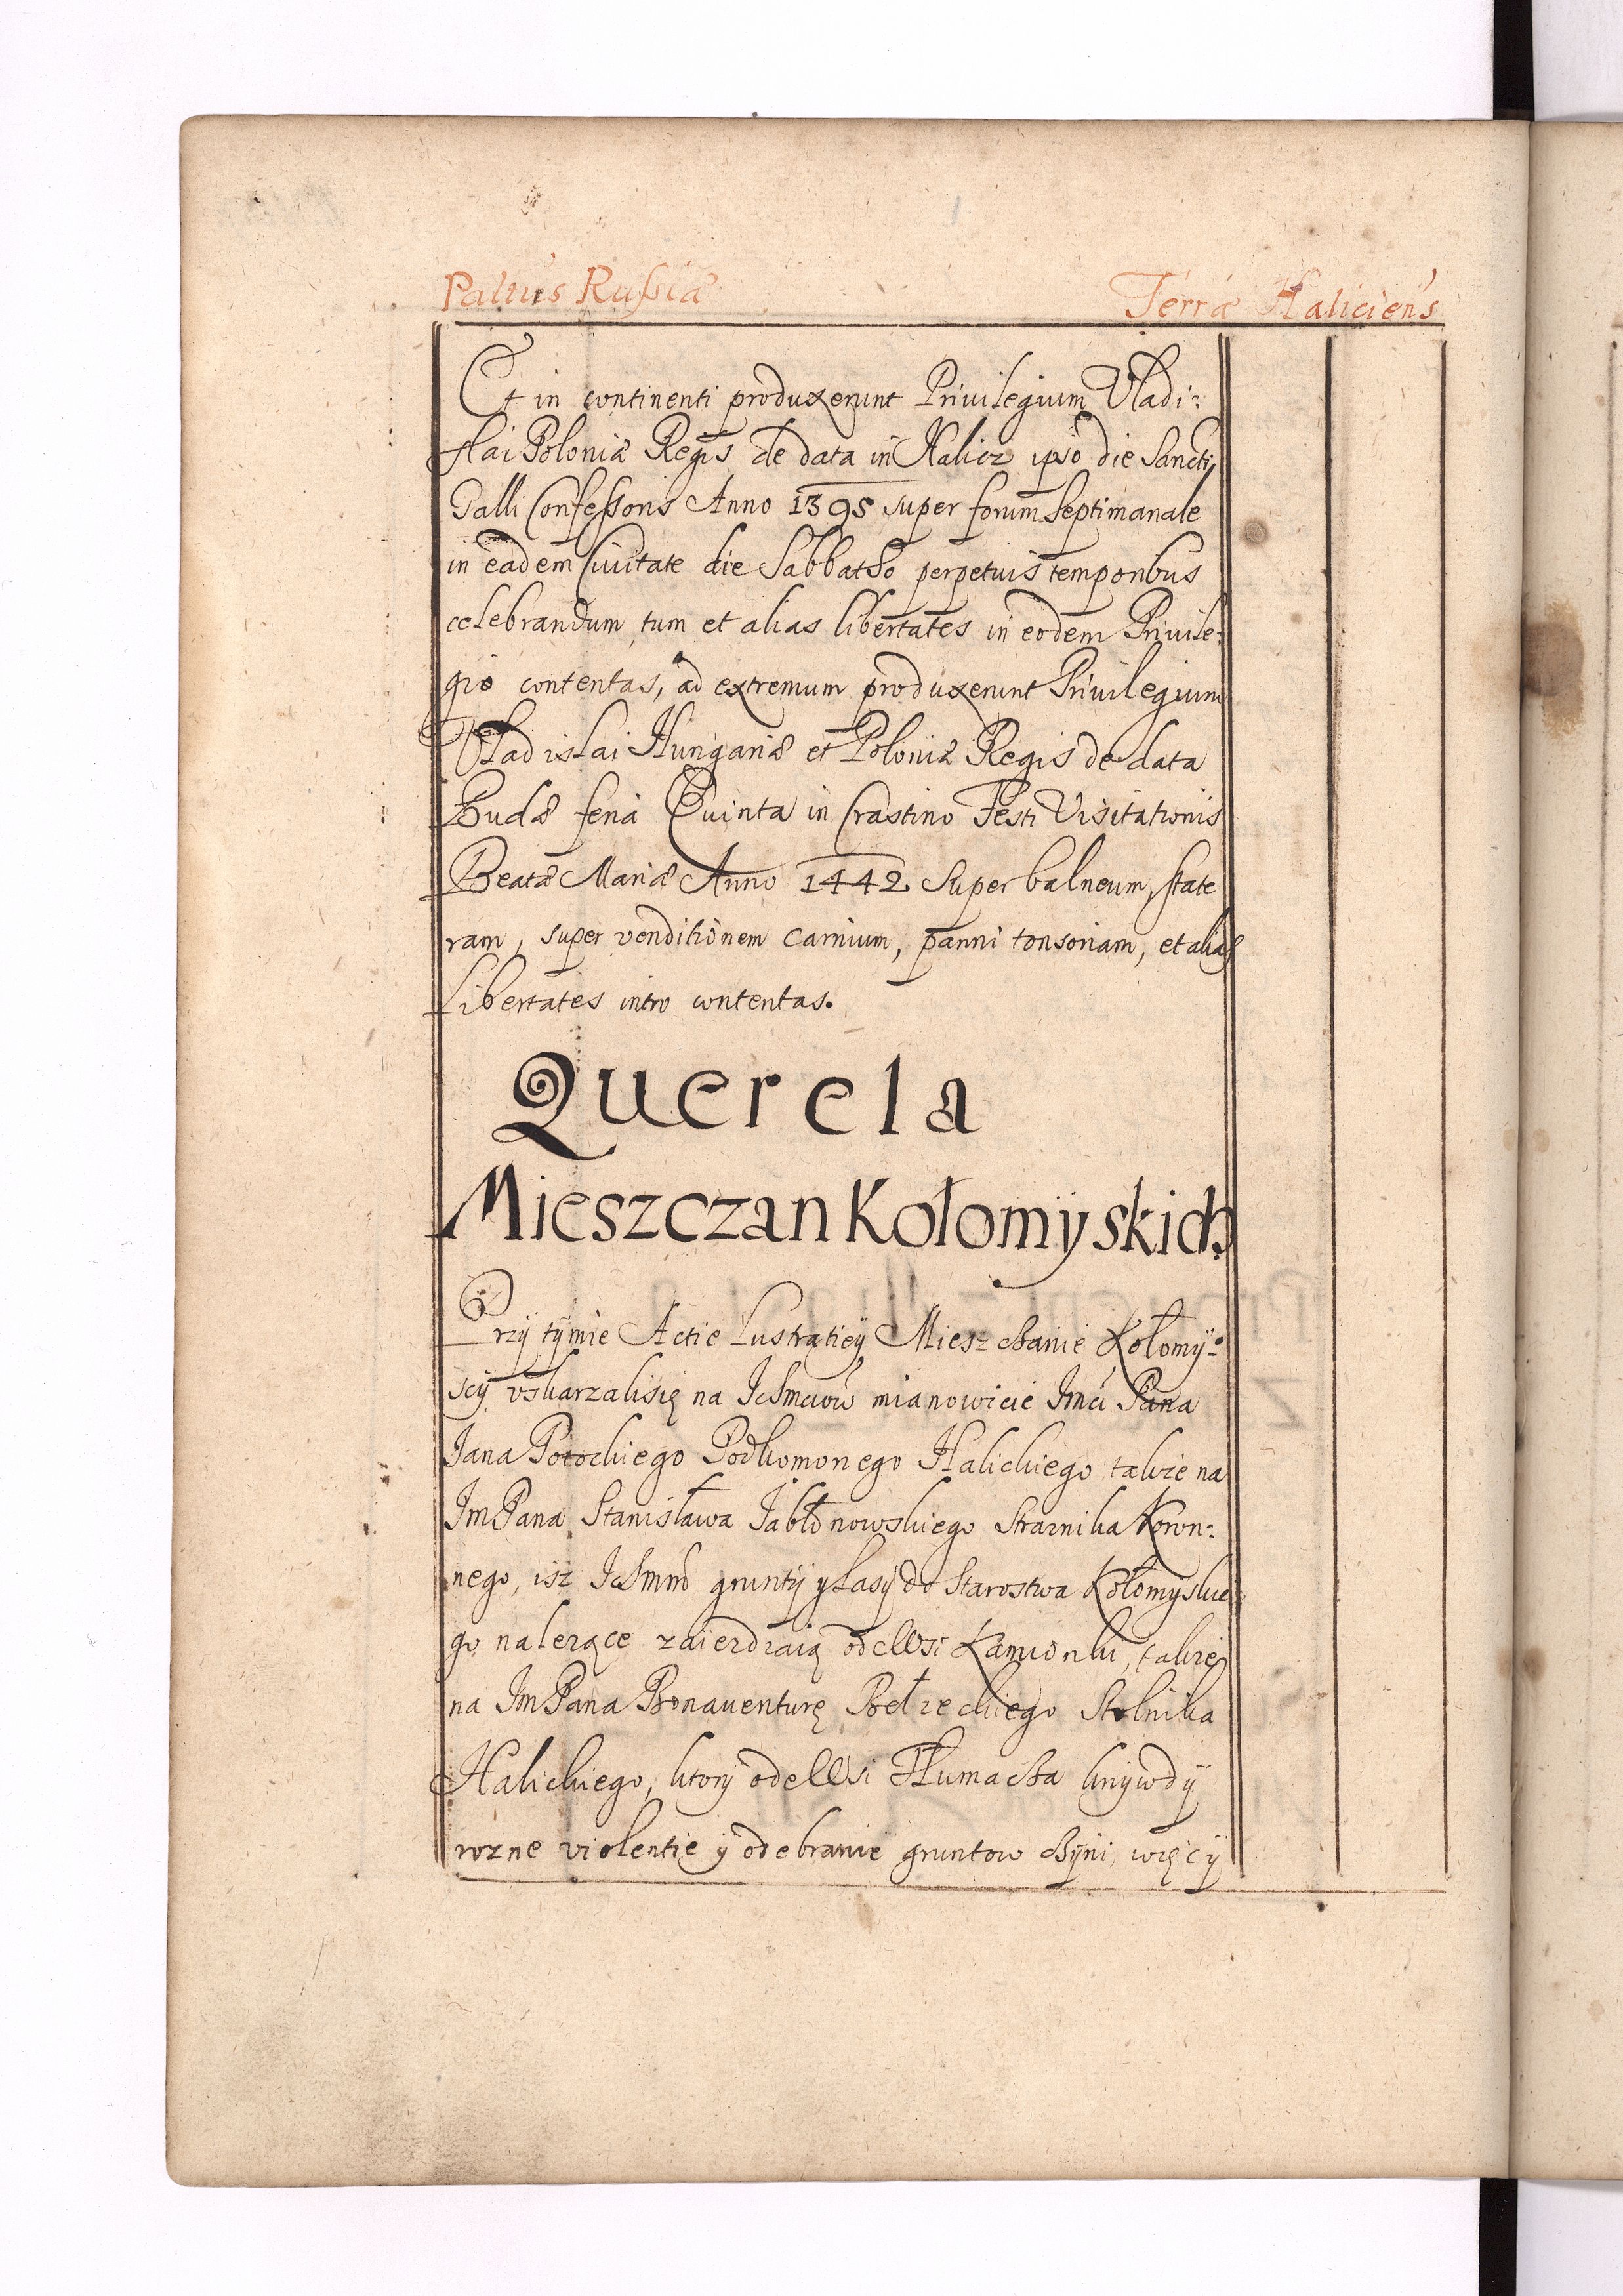 Paltus Russiæ Terræ Haliciens
Et in continenti produxerunt Privilegium Vladi:
slai Poloniæ Regis de data in Halicz ipso die Sancti
Galli Confessoris Anno 1395 super forum septimanale
in eadem Civitate die Sabbatho perpetuis temporibus
celebrandum tum et alias libertates in eodem Privile:
gio contentas, ad extremum produxerunt Privilegium
Vladislai Hungariæ et Poloniæ Regis de data
Budæ feria Quinta in Crastino Festi Visitationis
Beatæ Mariæ Anno 1442. Super balneum, state
ram, super venditionem carnium, panni tonsoriam, et alias
Libertates intro contentas.
Querela
Mieszczan Kołomÿskich
Przÿ tÿmie Actie Lustratieÿ Mieszchanie Kołomÿ:
scÿ vskarzalisię na Ichmciow mianowicie Imci Pana
Jana Potockiego Podkomorzego Halickiego takze na
Im Pana Stanisława Jabłonowskiego Straznika Koron:
nego, isz Ichmm gruntÿ y Lasÿ do Starostwa Kołomyskie
go nalezące zaierdzaią ode Wsi Kamionki, takze
na Im Pana Bonaventurę Bełzeckiego Stolnika
Halickiego, ktorÿ ode Wsi Tłumacza krzÿwdÿ
rozne violentie ÿ odebranie gruntow czÿni, więcÿ